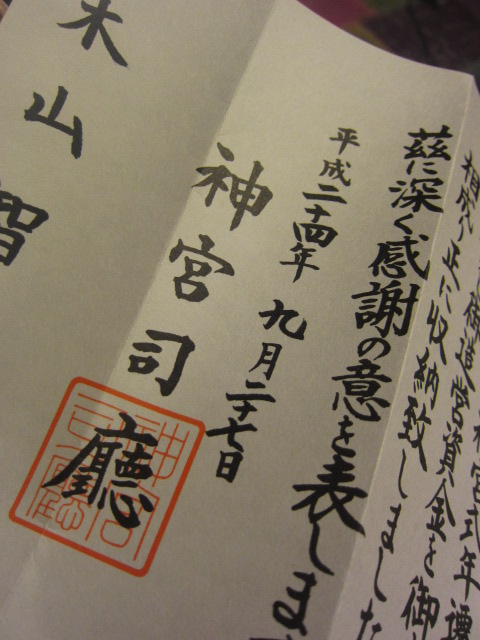 神宮式年遷
御造営資金を御
正に収納致しました
茲に深く感謝の意を表しま
平成二十四年九月二十七日
神宮司廳
木山智